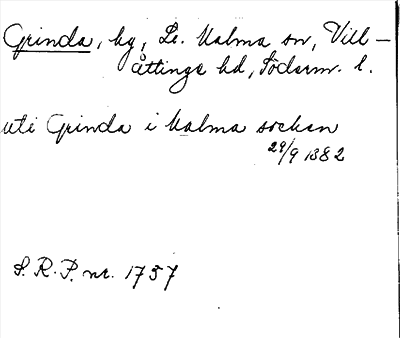 Grinda, hg, Le. Malma sn, Vill-
åttinge hd, Söderm. l.
uti Grinda i Malma socken
29/9 1382
S. R. P. nr. 1757